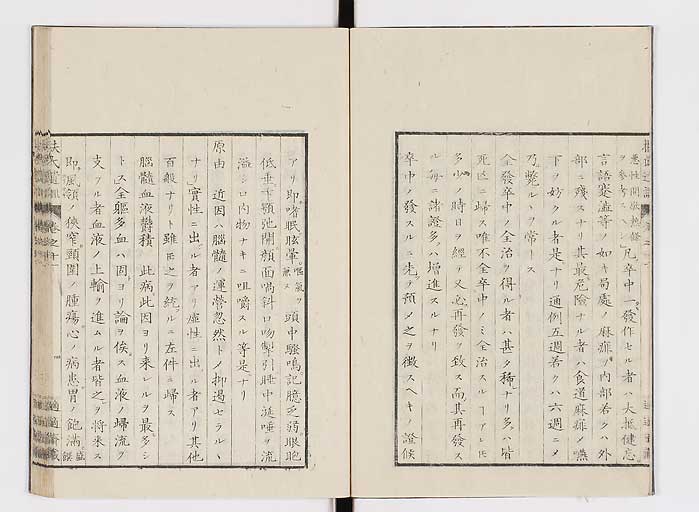 ヲ參考スヘシ
惡性間歇熱篇
凡卒中一發作セル者ハ大抵健忘
言語蹇澁等ノ如キ局處ノ麻痺ヲ內部若クハ外
部ニ殘ス者ナリ其最危險ナル者ハ食道麻痺ノ嚥
下ヲ妙クル者是ナリ通例五週若クハ六週ニメ
乃斃ルヽヲ常トス
全發卒中ノ全治ヲ得ル者ハ甚タ稀ナリ多ハ皆
死亡ニ歸ス唯不全卒中ノミ全治スルヿアレ𪜈
多少ノ時日ヲ經テ又必再發ヲ致ス而其再發ス
ル每ニ諸證多ハ增進スルナリ
卒中ノ發スルニ先テ預メ之ヲ徵スヘキノ證候
アリ即者眩暈
頭中騷鳴記臆乏弱眼胞
低垂下顎弛開顏面喎斜口吻掣引睡中涎唾ヲ流
溢シ口ニ物ナキニ咀嚼スル等是ナリ
原由 近因ハ腦髓ノ運營忽然トノ抑遏セラルヽ
ナリ實性ニ出ル者アリ虛性ニ出ル者アリ其他
百般ナリト雖𪜈之ヲ統ルニ左件ニ歸ス
腦髓血液鬱積 此病此因ヨリ來レルヲ最多シ
トス全軀多血ハ固ヨリ論ヲ俟ス血液ノ歸流ヲ
支フル者血液ノ上輸ヲ進ムル者皆之ヲ將來ス
即風領ノ狹窄頸圍ノ腫瘍心ノ病患胃ノ飽滿
扶氏經驗遺訓 卷之十一
適適齋藏